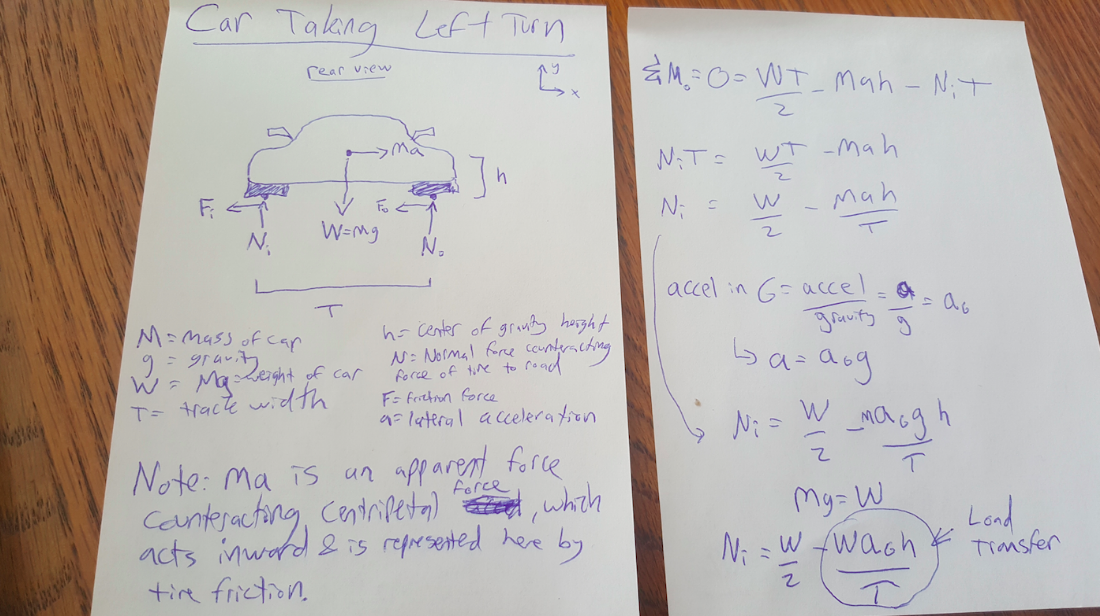 Car Taking Left Turn
rear view
y
x
Ma
h
Fi
Fo
Ni
W=Mg
No
T
M = mass of car
g = gravity
W = Mg = weight of car
T = track width
h = center of gravity height
N = Normal force counteracting
force of tire to road
F = friction force
a = lateral acceleration
Note: Ma is an apparent force
counteracting centripetal force, which
acts inward & is represented here by
tire friction.
ΣMo = 0 = WT/2 - Mah - NiT
NiT = WT/2 - Mah
Ni = W/2 - Mah/T
accel in G = accel/gravity = a/g = aG
↳ a = aGg
Ni = W/2 - maGgh/T
Mg = W
Ni = W/2 - WaGh/T ← Load
Transfer